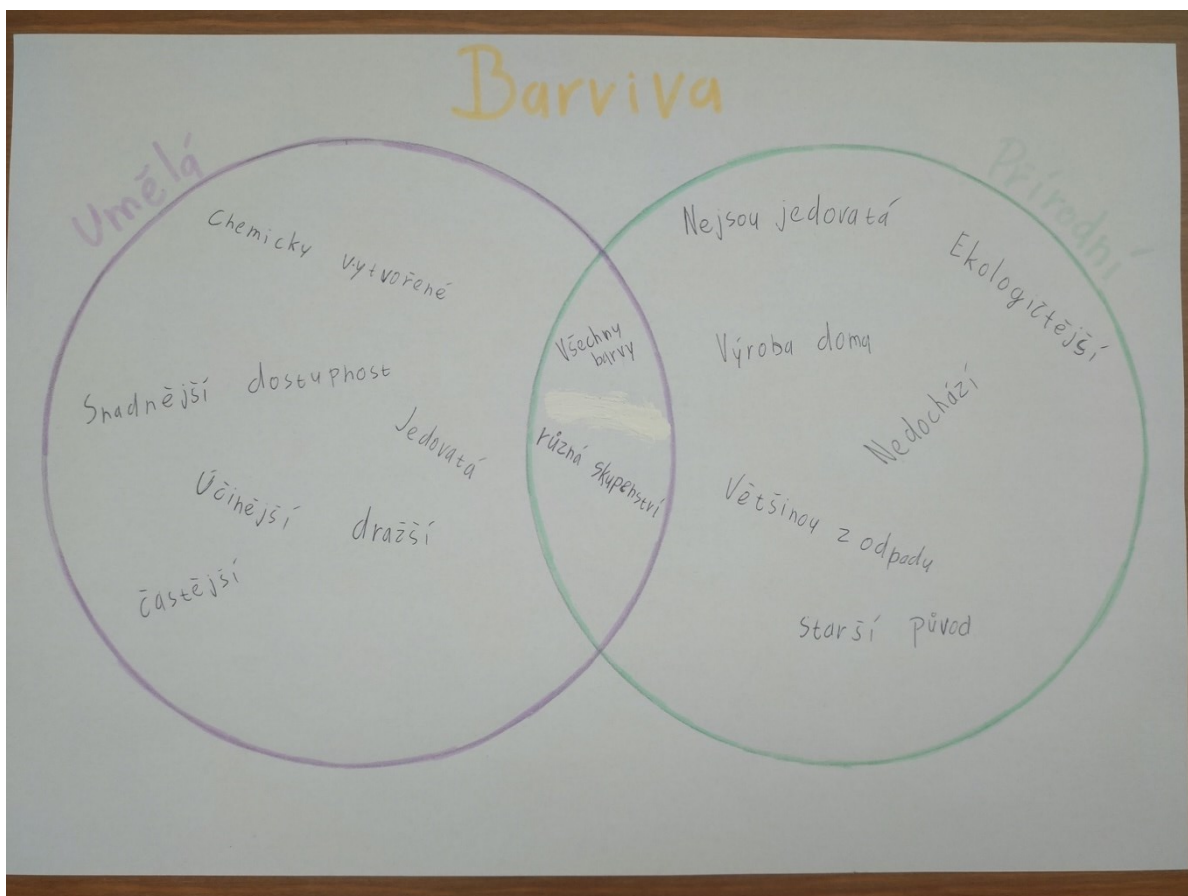 Barviva
Umělá
Chemicky vytvořené
Snadnější dostupnost
Jedovatá
Účinější
dražší
častější
Všechny
barvy
různá skupenství
Přírodní
Nejsou jedovatá
Ekologičtější
Výroba doma
Nedochází
Většinou z odpadu
starší původ